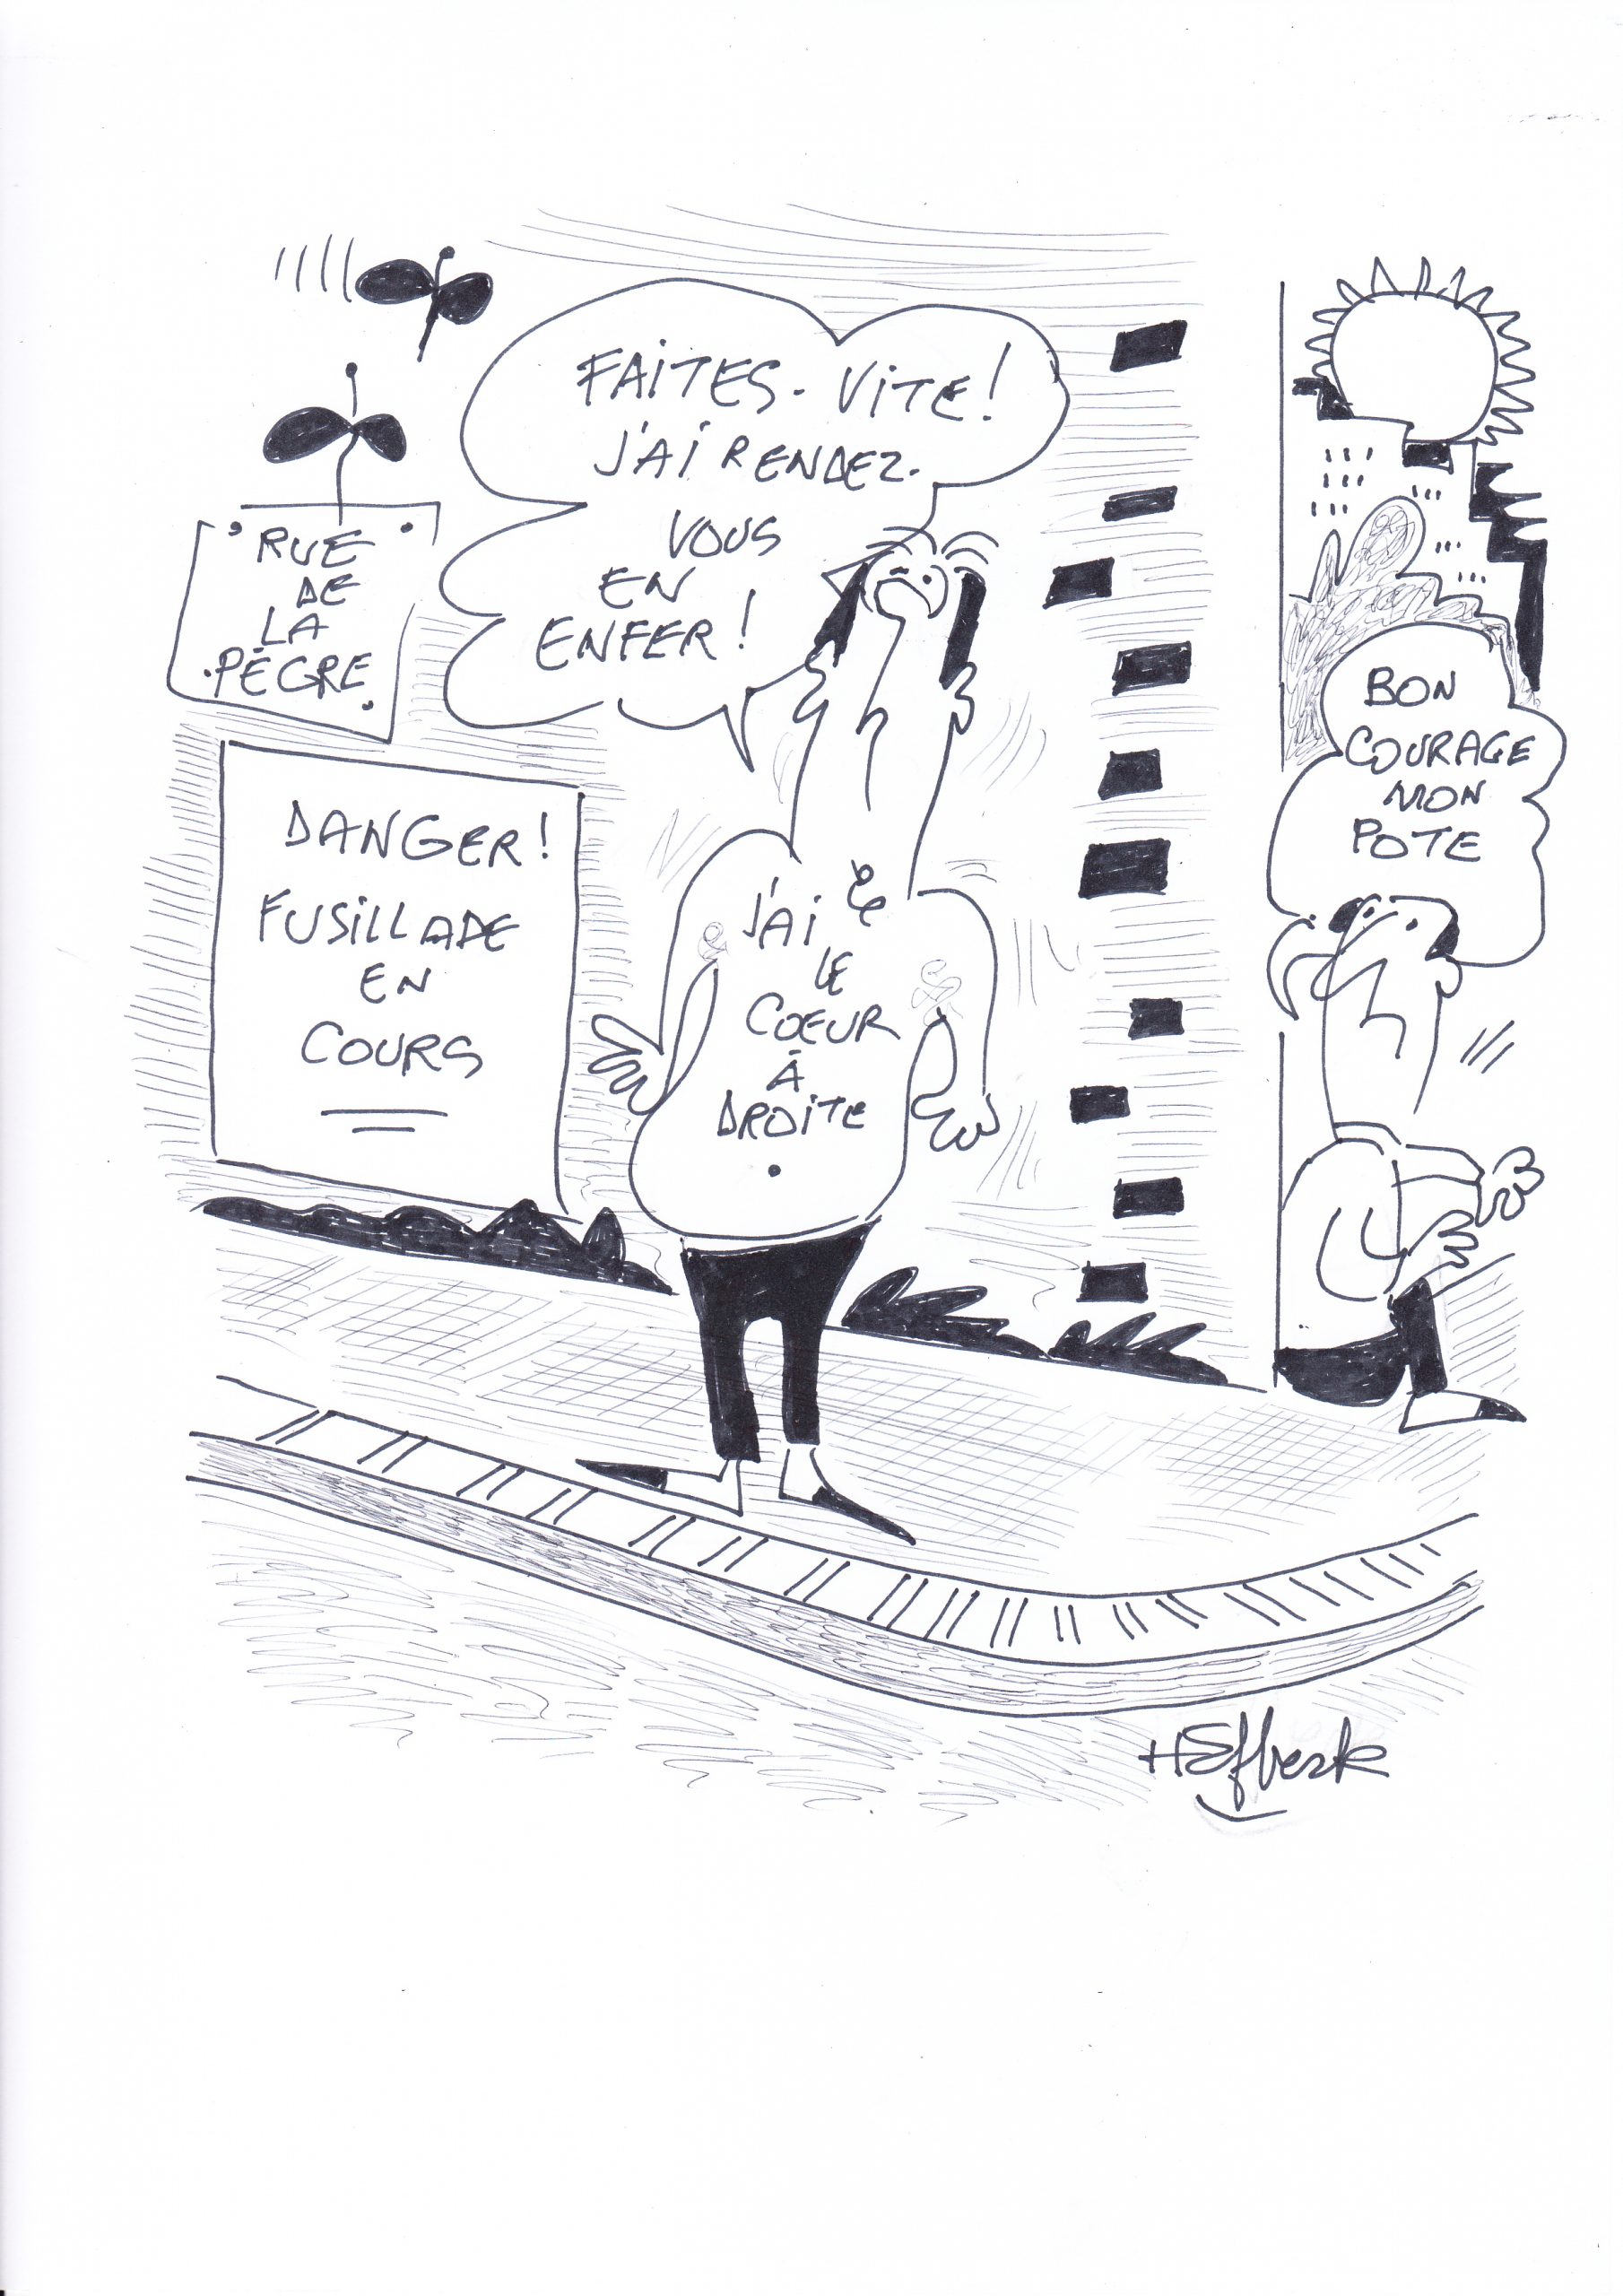 FAITES-VITE!
J'AI RENDEZ-
VOUS
EN
ENFER!
RUE
DE
LA
PÈGRE
DANGER!
FUSILLADE
EN
COURS
J'AI
LE
COEUR
À
DROITE
BON
COURAGE
MON
POTE